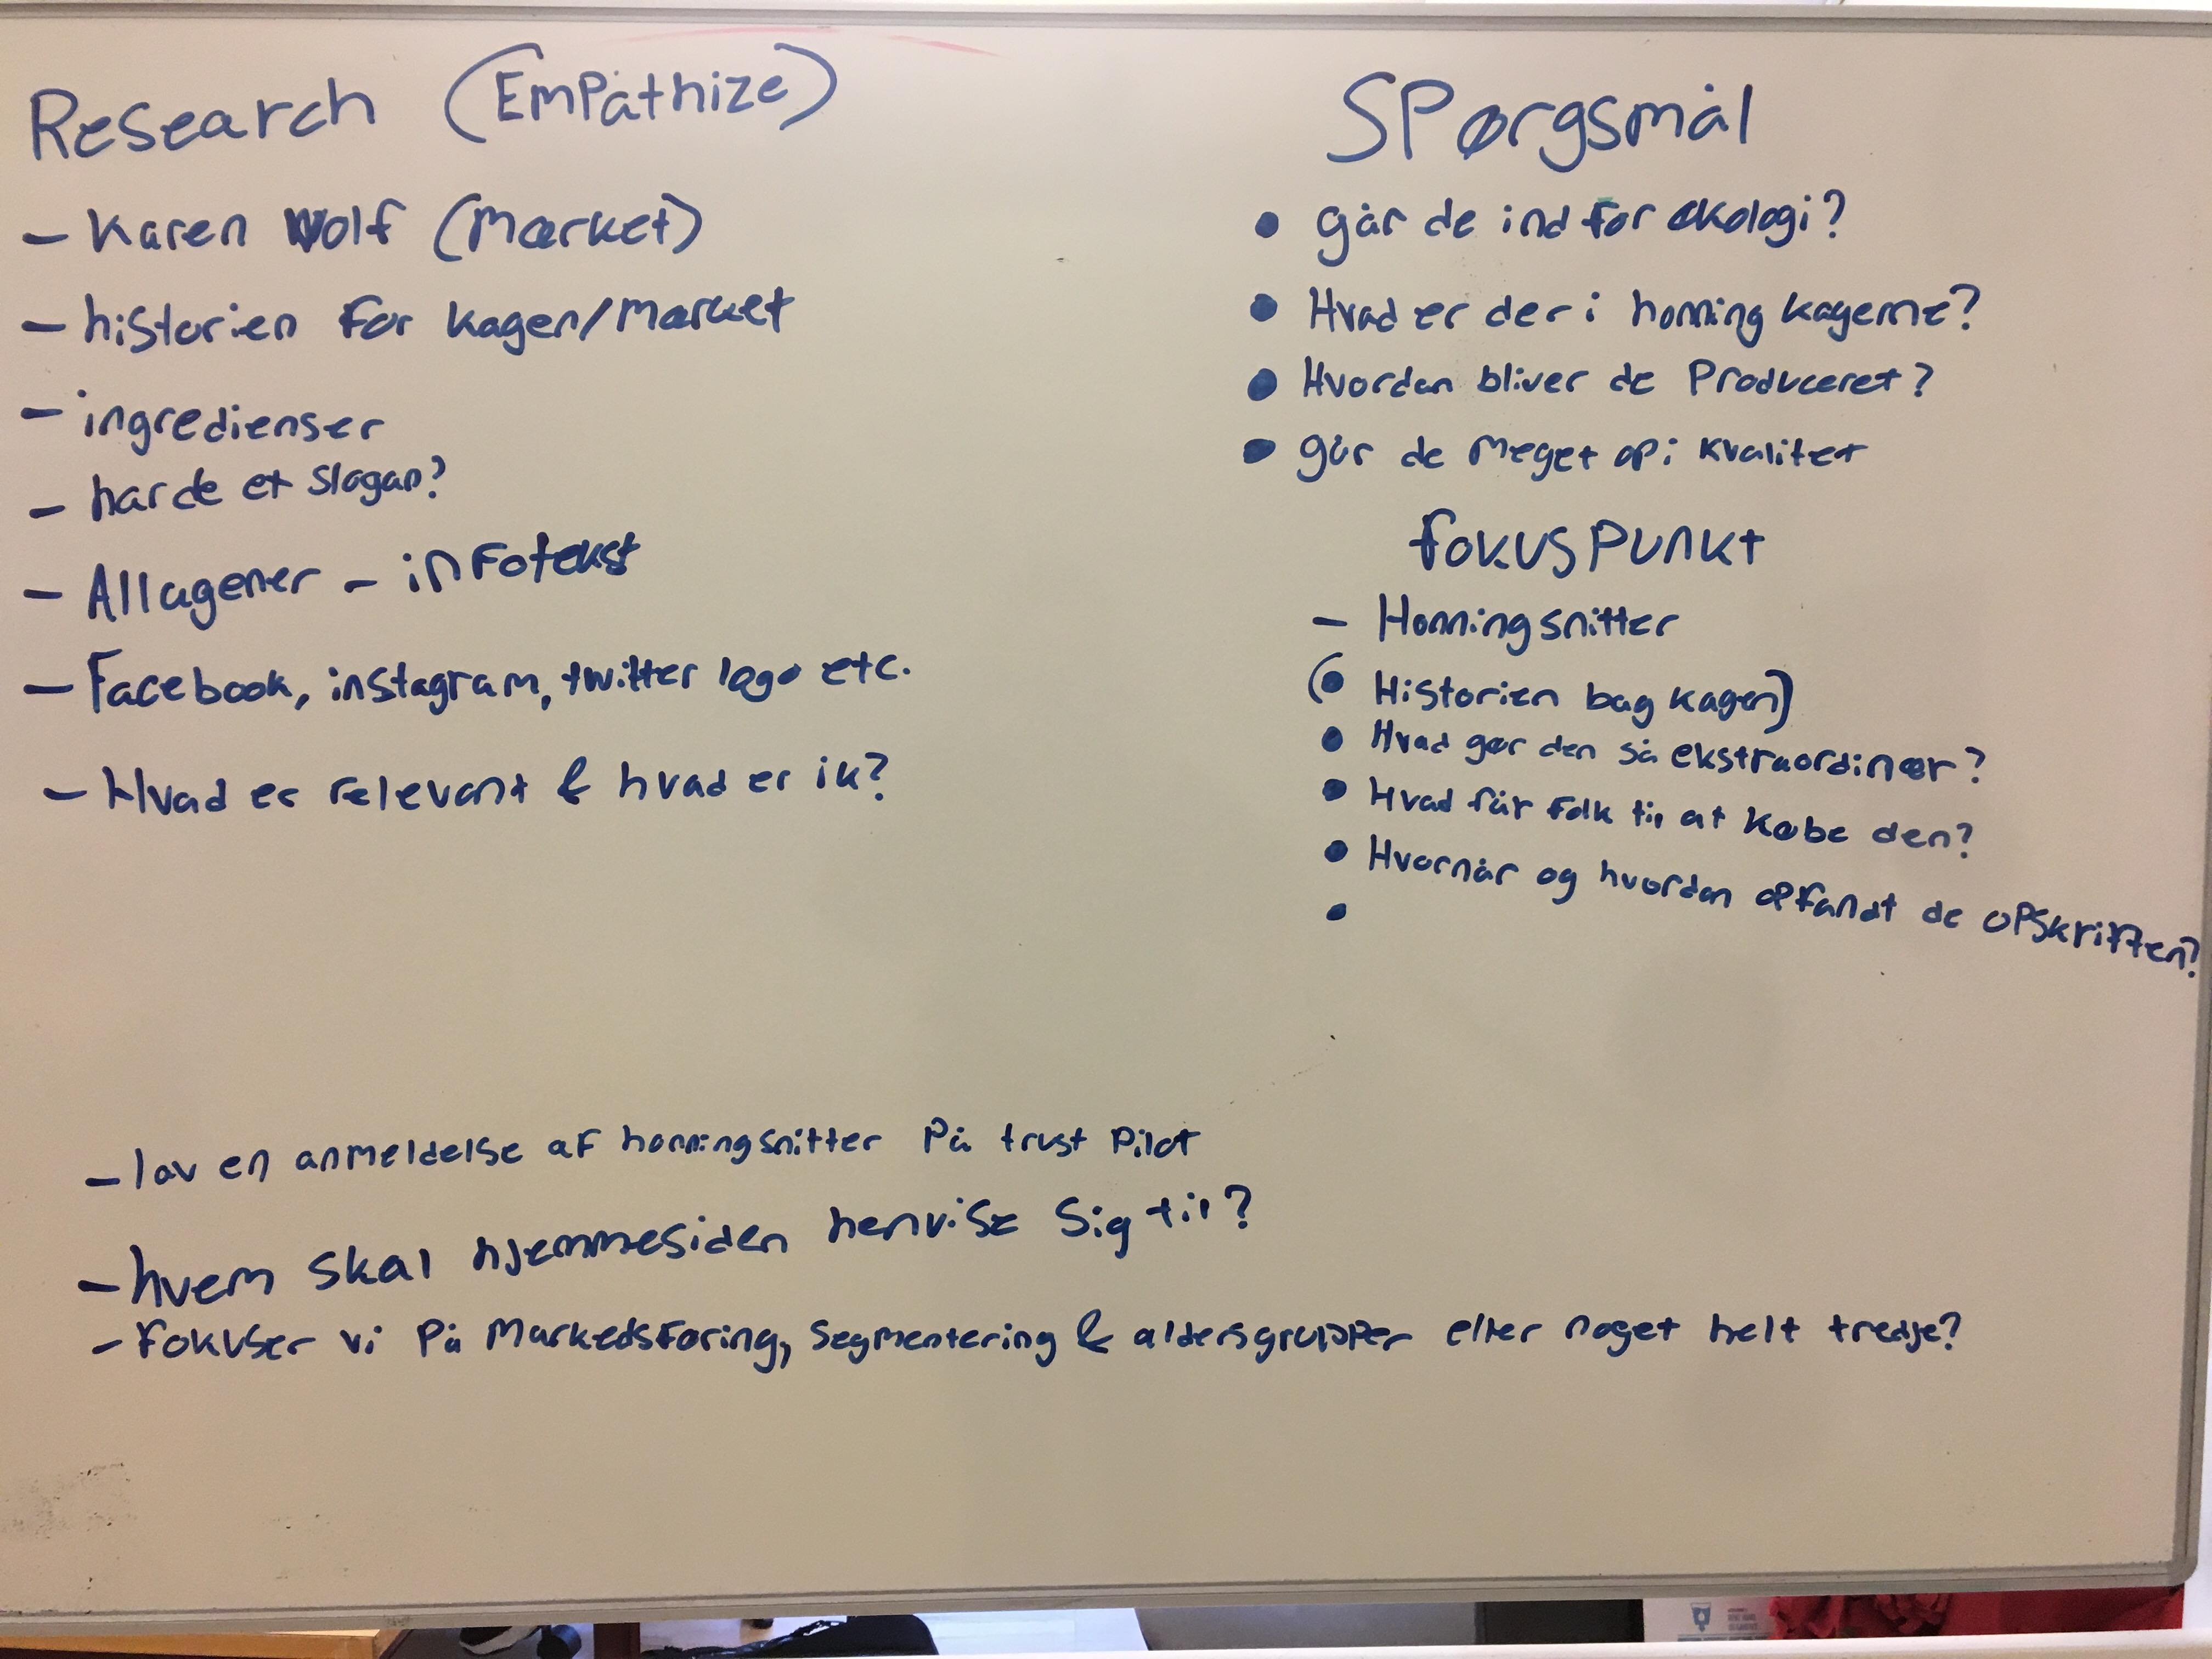 Research (Empathize)
- Karen Wolf (Mærket)
- historien for kagen/mærket
- ingredienser
- har de et slogan?
- Allagener - infotekst
- Facebook, instagram, twitter logo etc.
- Hvad er relevant & hvad er ik?
Spørgsmål
• går de ind for økologi?
• Hvad er der i honning kagerne?
• Hvordan bliver de Produceret?
• går de meget op i kvalitet
fokuspunkt
- Honningsnitter
(• Historien bag kagen)
• Hvad gør den så ekstraordinær?
• Hvad får folk til at købe den?
• Hvornår og hvordan opfandt de opskriften?
•
- lav en anmeldelse af honningsnitter på trust pilot
- hvem skal hjemmesiden henvise sig til?
- fokuser vi på Markedsføring, Segmentering & aldersgrupper eller noget helt tredje?